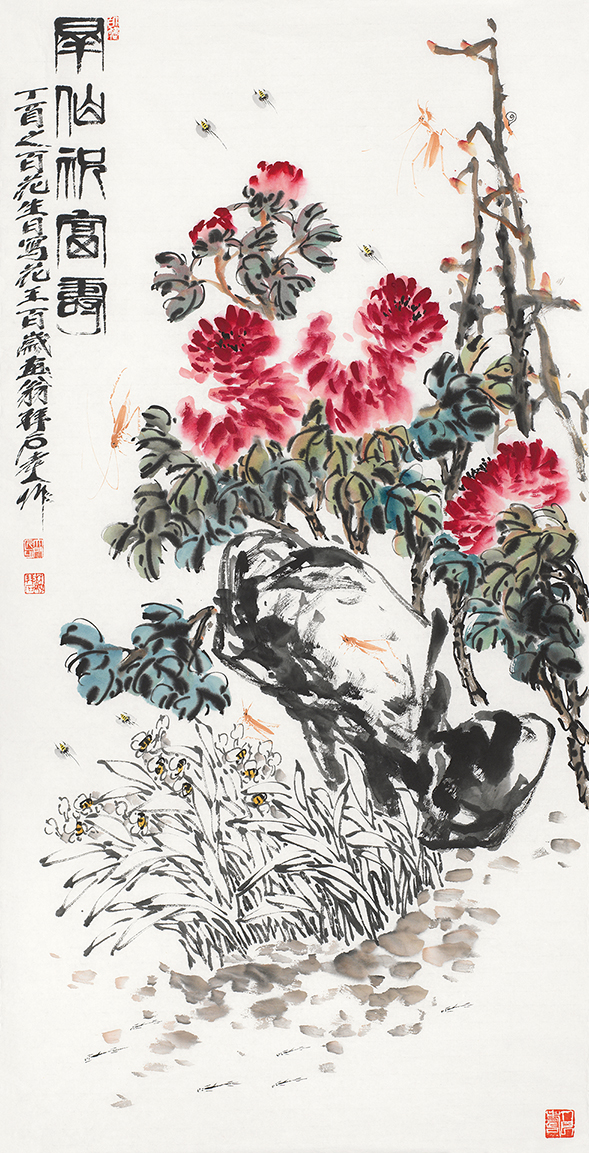 羣仙祝富壽
丁酉之百花生日寫花王百歲画翁拜石堂作